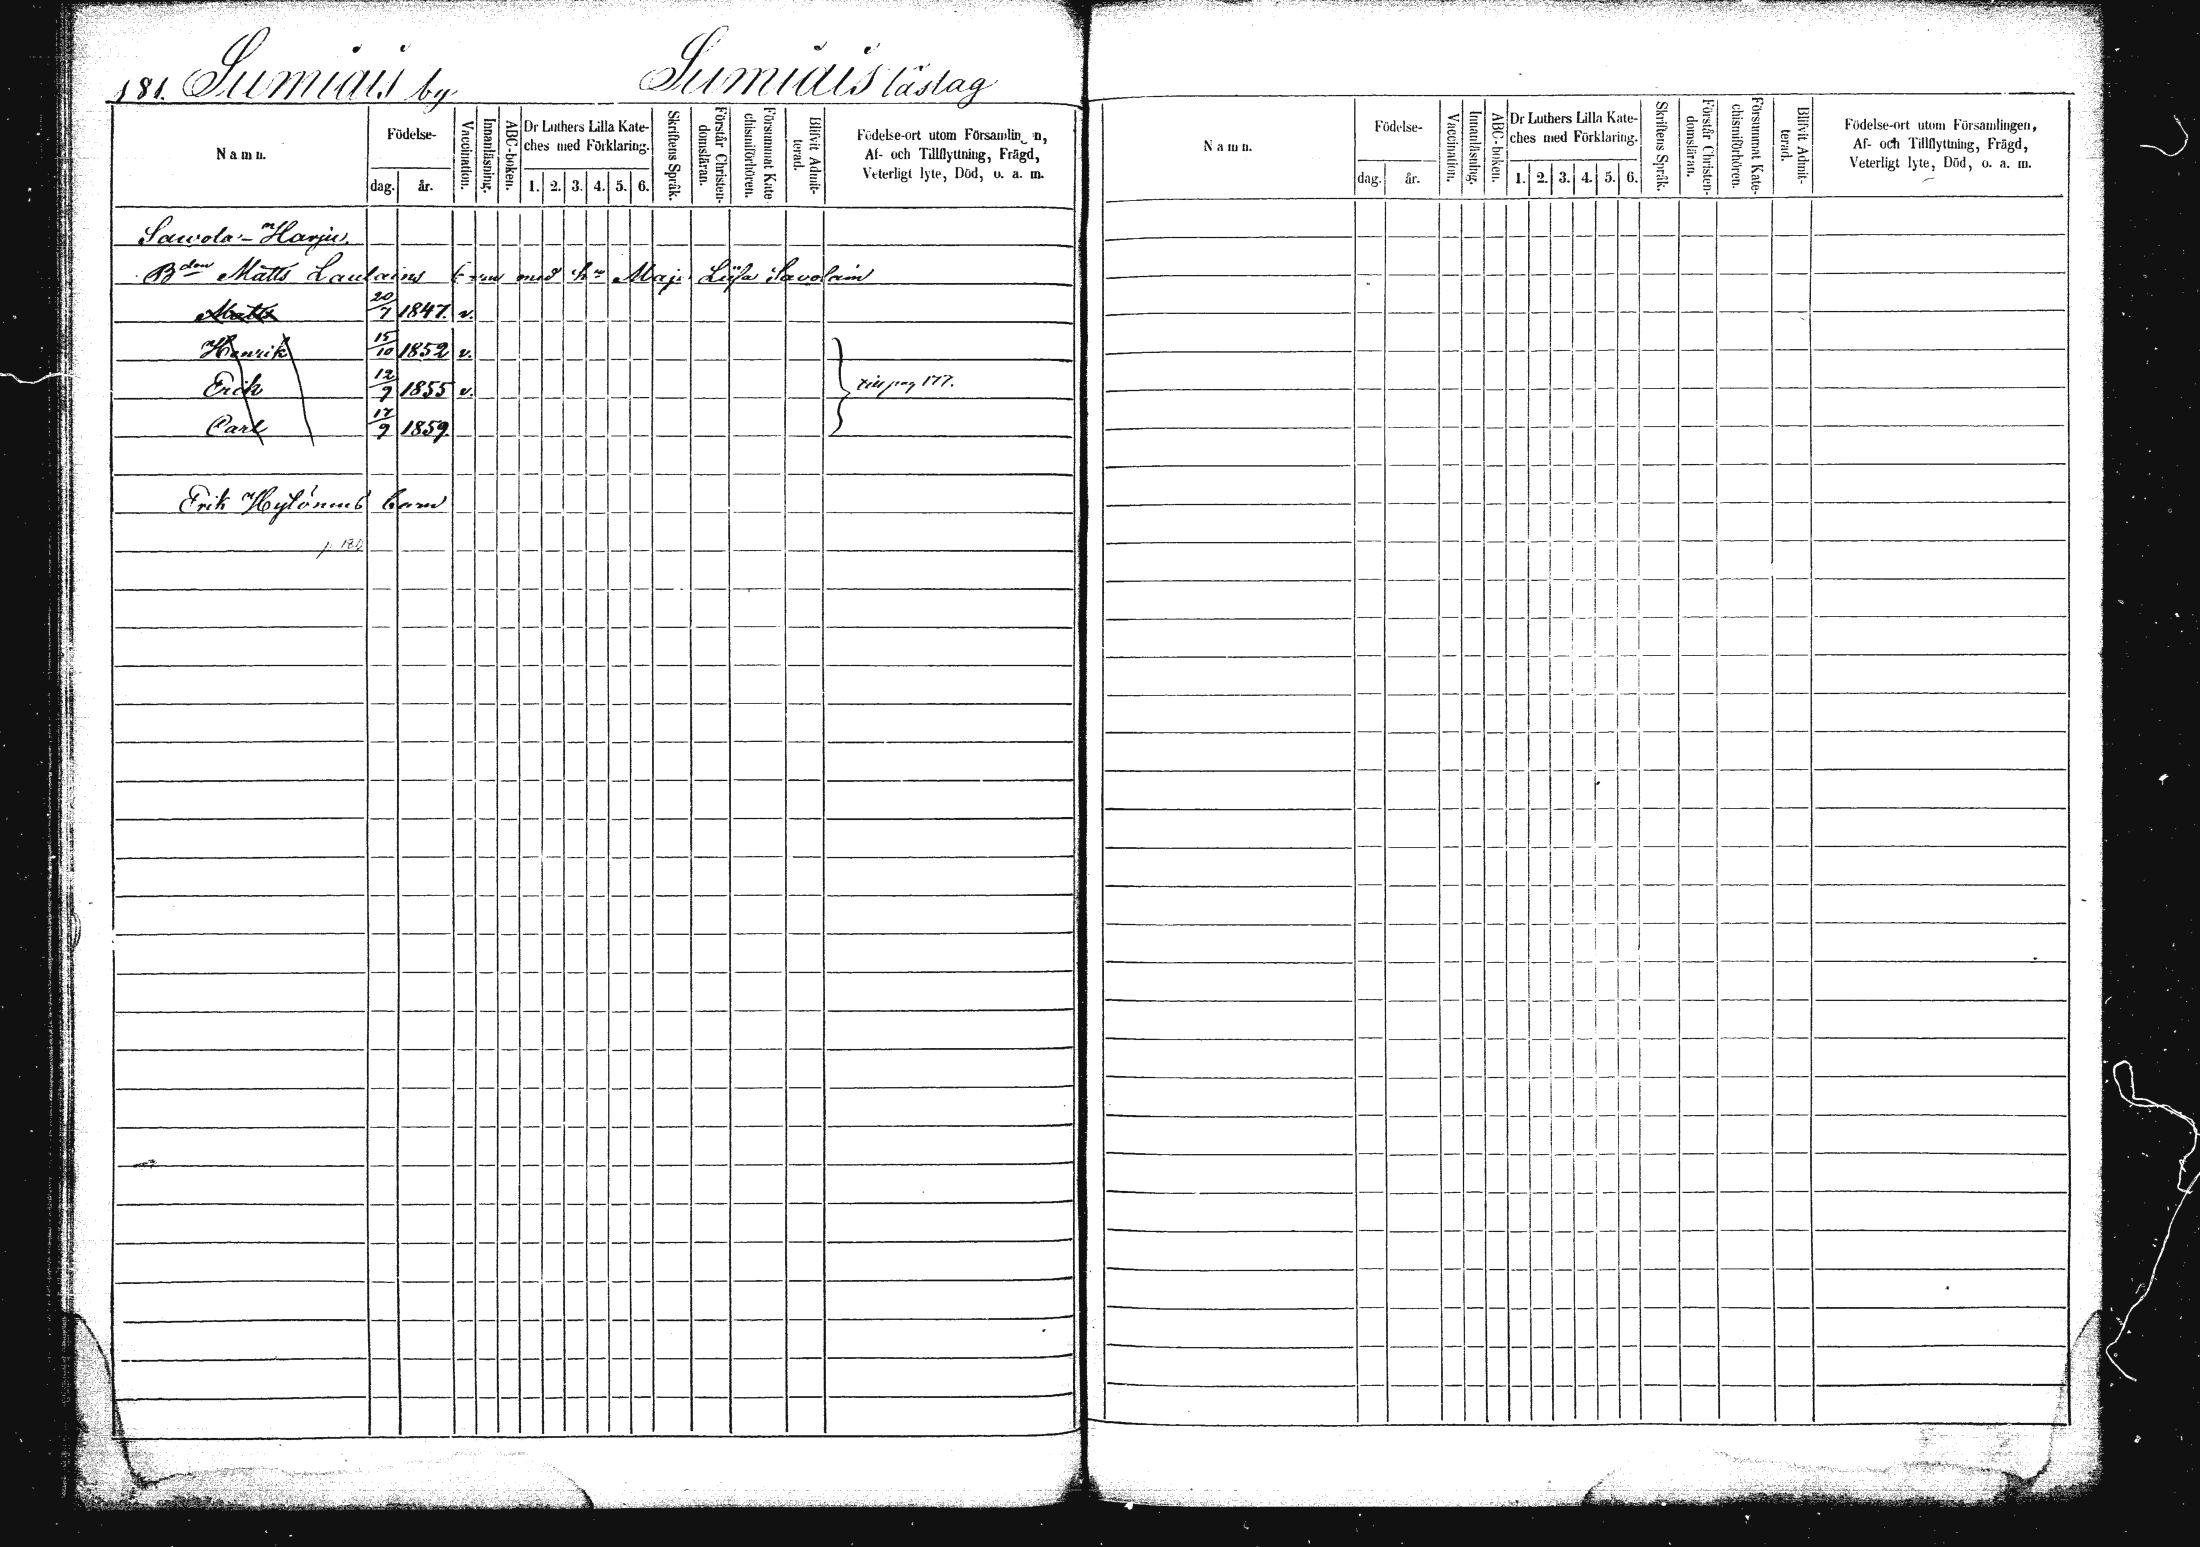 181. Sumiais by Sumiais läslag
Namn. Födelse- dag. år. Vaccination. Innanläsning. ABC-boken. Dr Luthers Lilla Kate-ches med Förklaring. 1. 2. 3. 4. 5. 6. Skriftens Språk. Förstår Christen-domsläran. Försummat Kate-chismiförhören. Blifvit Admit-terad. Födelse-ort utom Församlingen, Af- och Tillflyttning, Frägd, Veterligt lyte, Död, o. a. m.
Sawola-Harju.
Bden Matts Lautains barn med hu Maja Liisa Savolain
Matts 20/7 1847. v.
Henrik 15/10 1852 v.
Erik 12/9 1855 v. till pag 177.
Carl 17/9 1859.
Erik Hytönens barn
p. 180
Namn. Födelse- dag. år. Vaccination. Innanläsning. ABC-boken. Dr Luthers Lilla Kate-ches med Förklaring. 1. 2. 3. 4. 5. 6. Skriftens Språk. Förstår Christen-domsläran. Försummat Kate-chismiförhören. Blifvit Admit-terad. Födelse-ort utom Församlingen, Af- och Tillflyttning, Frägd, Veterligt lyte, Död, o. a. m.